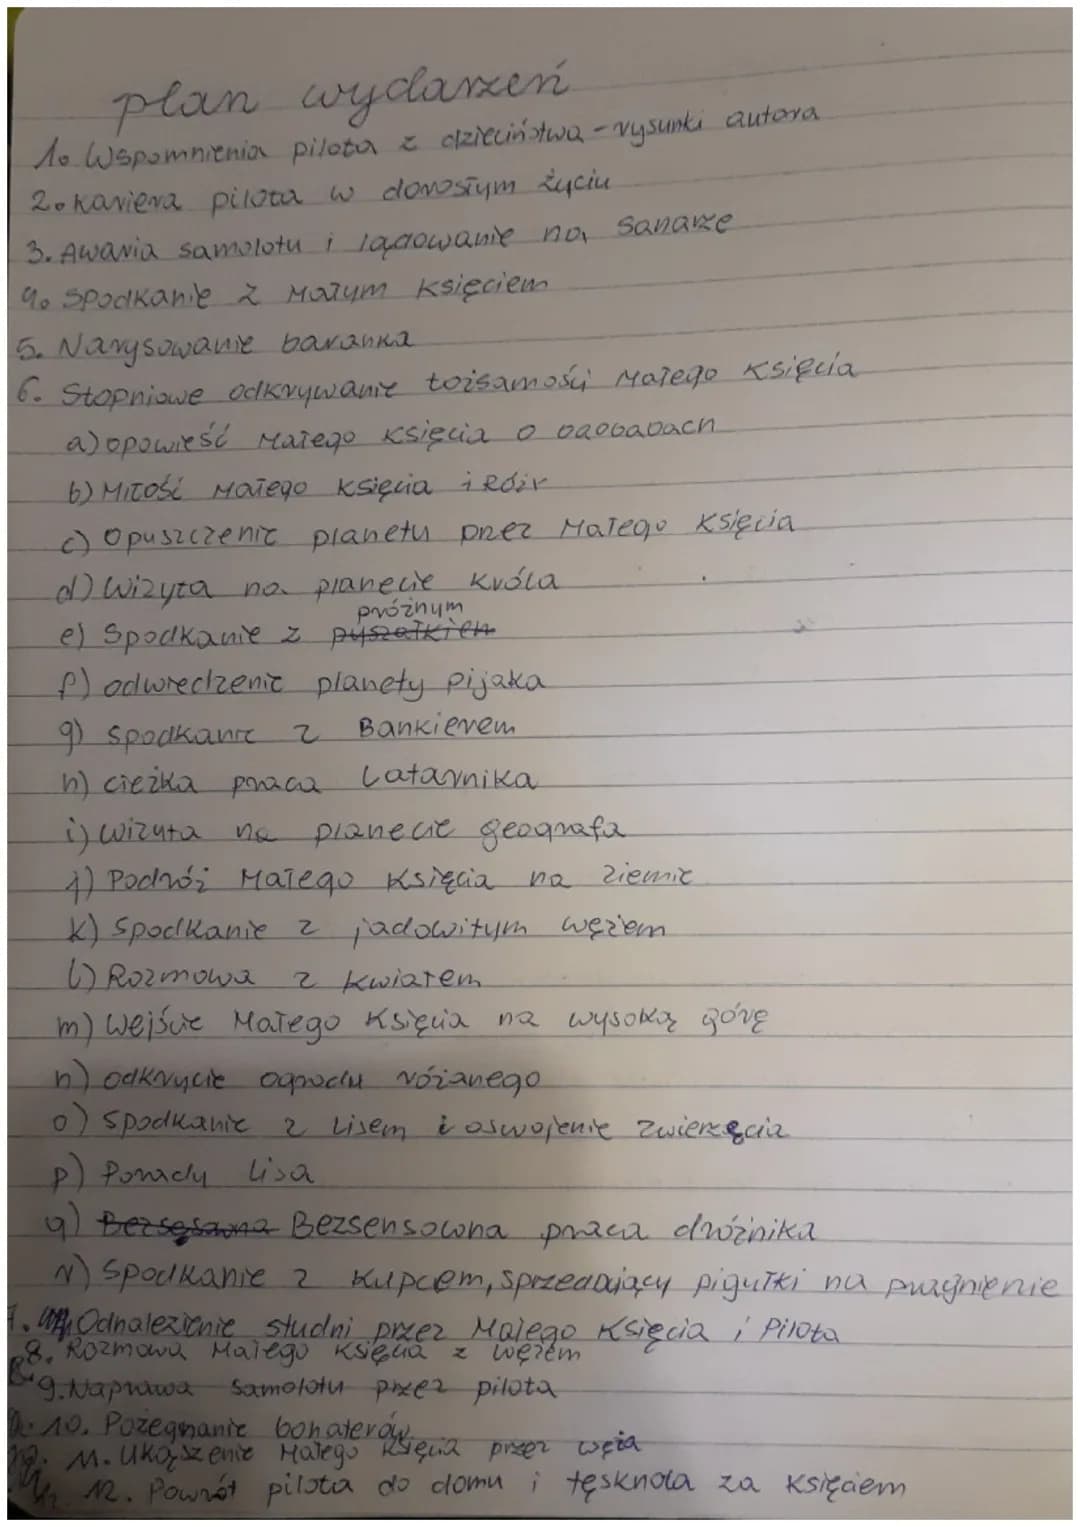 plan wydarzeń
1. Wspomnienia pilota z dzieciństwa - rysunki autora
2. kariera pilota w dorosłym życiu
3. Awaria samolotu i lądowanie na Saharze
4. Spodkanie z Małym Księciem
5. Narysowanie baranka
6. Stopniowe odkrywanie tożsamości Małego Księcia
a) opowieść Małego Księcia o baobabach
b) Miłość Małego Księcia i Róży
c) Opuszczenie planety przez Małego Księcia
d) Wizyta na planecie Króla
próżnym
e) Spodkanie z pyszałkiem
f) odwiedzenie planety pijaka
g) spodkanie z Bankierem
h) ciężka praca Latarnika
i) wizyta na planecie geografa
j) Podróż Małego Księcia na ziemie
k) Spodkanie z jadowitym wężem
l) Rozmowa z kwiatem
m) Wejście Małego Księcia na wysoką górę
n) odkrycie ogrodu różanego
o) Spodkanie z Lisem i oswojenie zwierzęcia
p) Porady Lisa
q) Bezsensowna praca dróżnika
r) Spodkanie z kupcem, sprzedający pigułki na pragnienie
7. Odnalezienie studni przez Małego Księcia i Pilota
8. Rozmowa Małego Księcia z wężem
9. Naprawa samolotu przez pilota
10. Pożegnanie bohaterów
11. Ukąszenie Małego Księcia przez węża
12. Powrót pilota do domu i tęsknota za Księciem